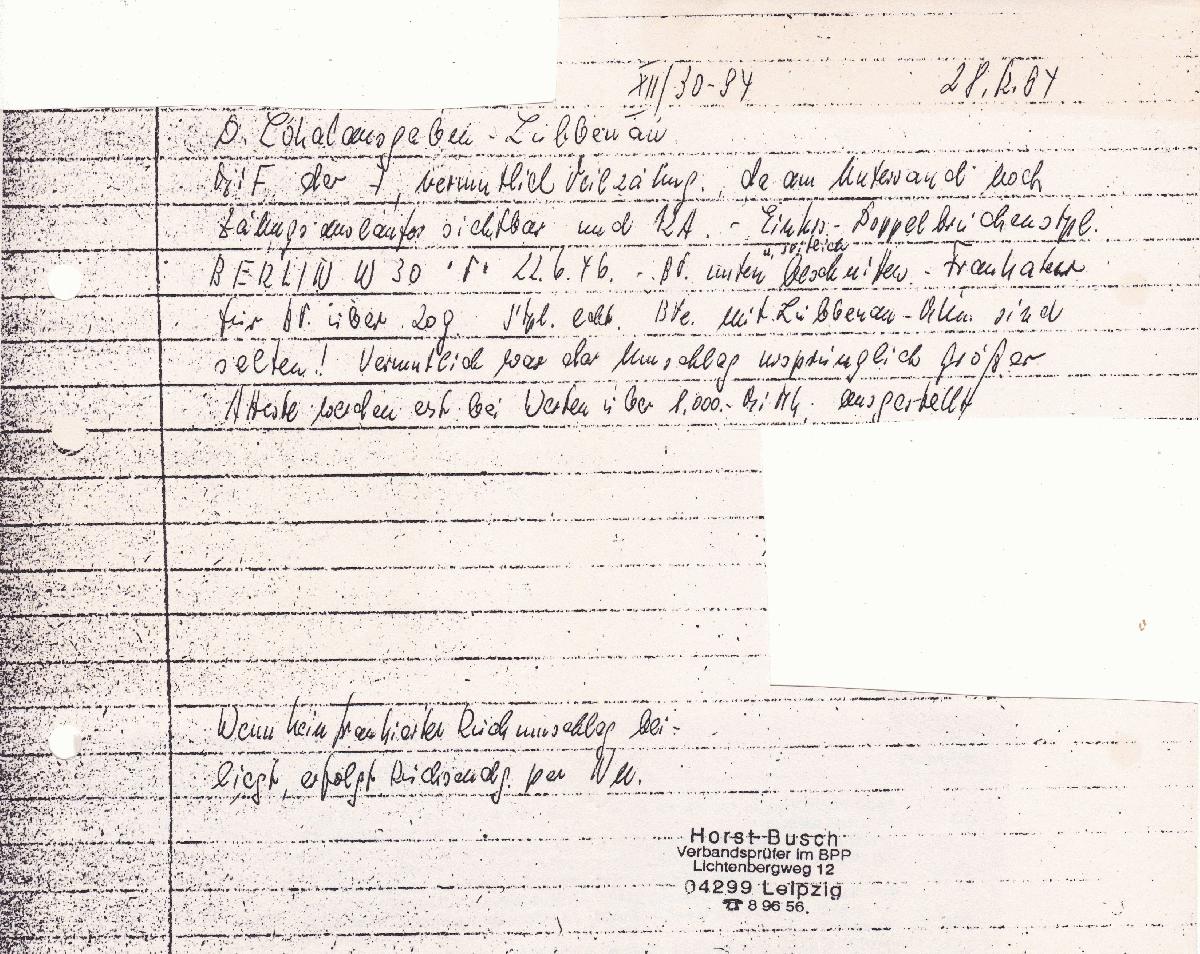 XII/30-94 28.12.94
D. Lokalausgaben - Lübbenau
MiF der I, vermutlich Teilzähng., da am Unterrand noch
Zähngsausläufer sichtbar und 12A. - Einkr.-Doppelbrückenstpl.
u. seitlich
BERLIN W 30 "r" 22.6.46. - Bf. unten beschnitten. - Frankatur
für Bf. über 20g. Stpl. echt. Bfe. mit Lübbenau-Mkn. sind
selten! Vermutlich war der Umschlag ursprünglich größer
Atteste werden erst bei Werten über 1.000.- MiMk. ausgestellt
Wenn kein frankierter Rückumschlag bei-
liegt, erfolgt Rücksendg. per NN.
Horst Busch
Verbandsprüfer im BPP
Lichtenbergweg 12
04299 Leipzig
☎ 8 96 56.